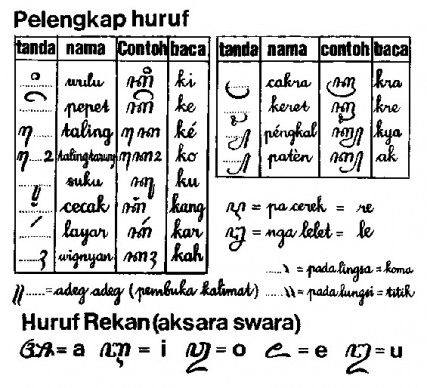 Pelengkap huruf
tanda nama Contoh baca
ꦶ wulu ꦏꦶ ki
ꦼ pepet ꦏꦼ ke
ꦺ taling ꦏꦺ ké
ꦺ....ꦴ talingtarung ꦏꦺꦴ ko
ꦸ suku ꦏꦸ ku
ꦁ cecak ꦏꦁ kang
ꦂ layar ꦏꦂ kar
ꦃ wignyan ꦏꦃ kah
tanda nama contoh baca
ꦿ cakra ꦏꦿ kra
ꦽ keret ꦏꦽ kre
ꦾ péngkal ꦏꦾ kya
꧀ patèn ꦏ꧀ ak
ꦉ = pa cerek = re
ꦊ = nga lelet = le
.....꧈ = pada lingsa = koma
꧋.....= adeg adeg (pembuka kalimat) .....꧉ = pada lungsi = titik
Huruf Rekan (aksara swara)
ꦄ = a ꦆ = i ꦎ = o ꦌ = e ꦈ = u